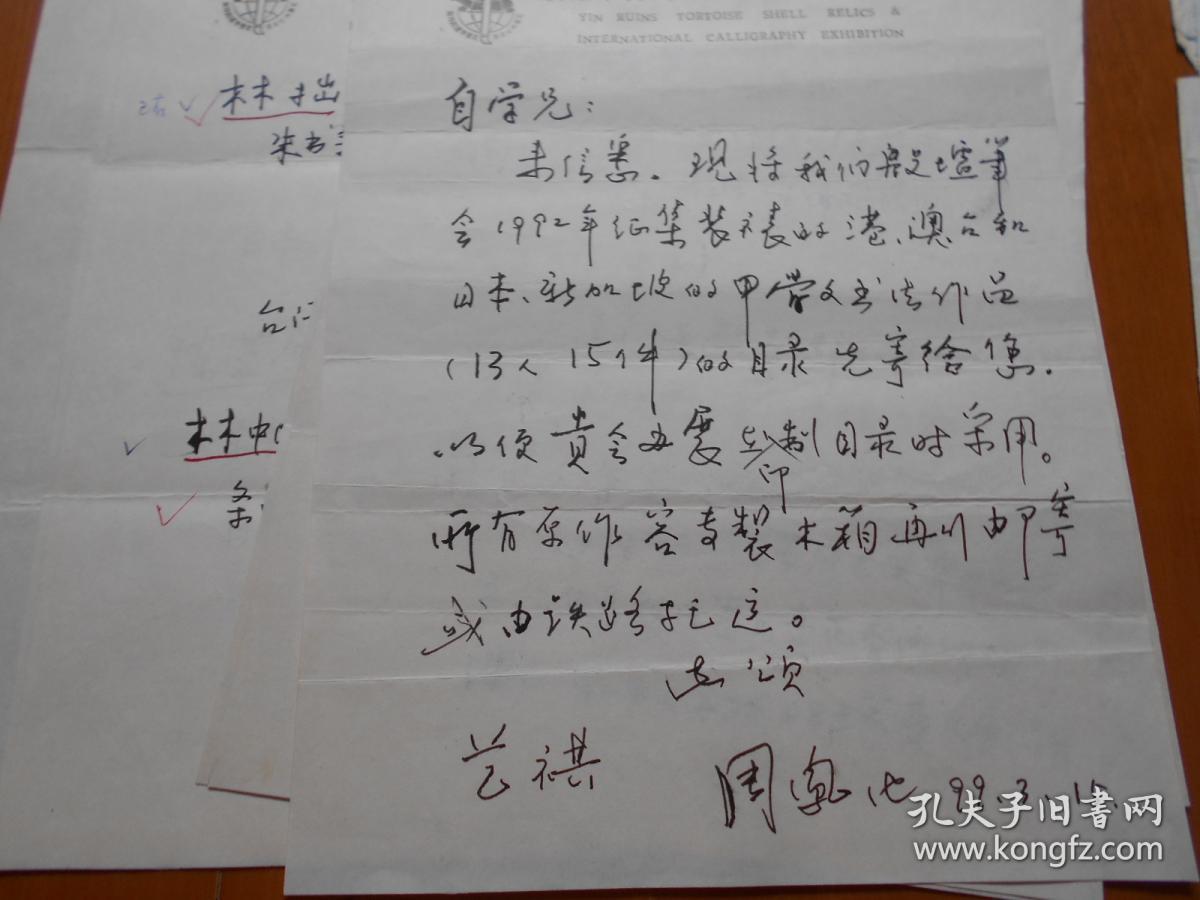 YIN RUINS TORTOISE SHELL RELICS &
INTERNATIONAL CALLIGRAPHY EXHIBITION
自学兄：
来信悉。现将我们殷墟笔
会1992年征集装裱的港、澳、台和
日本、新加坡的甲骨文书法作品
（13人 15件）的目录先寄给您.
以便贵会办展印制目录时采用。
所有原作容专製木箱再行邮寄
或由铁路托运。
此颂
艺祺
周凤池 99.3.15.
林木拙
朱书
台
林木中
条
孔夫子旧书网
www.kongfz.com